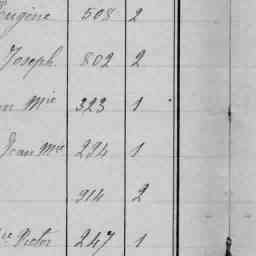 Eugène 508 2
Joseph 802 2
n Mie 323 1
Jean Mie 224 1
914 2
Victor 247 1